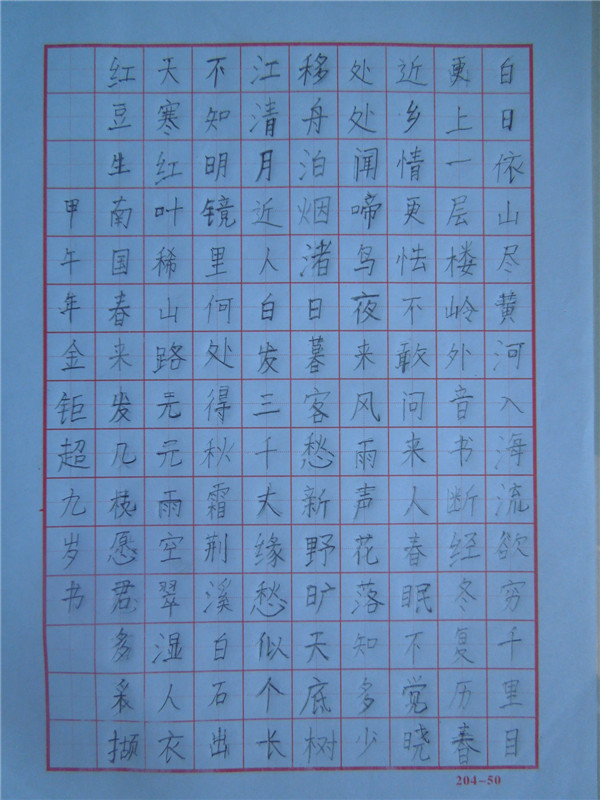 白日依山尽黄河入海流欲穷千里目
更上一层楼岭外音书断经冬复历春
近乡情更怯不敢问来人春眠不觉晓
处处闻啼鸟夜来风雨声花落知多少
移舟泊烟渚日暮客愁新野旷天底树
江清月近人白发三千丈缘愁似个长
不知明镜里何处得秋霜荆溪白石出
天寒红叶稀山路无元雨空翠湿人衣
红豆生南国春来发几枝愿君多采撷
甲午年金钜超九岁书
204-50